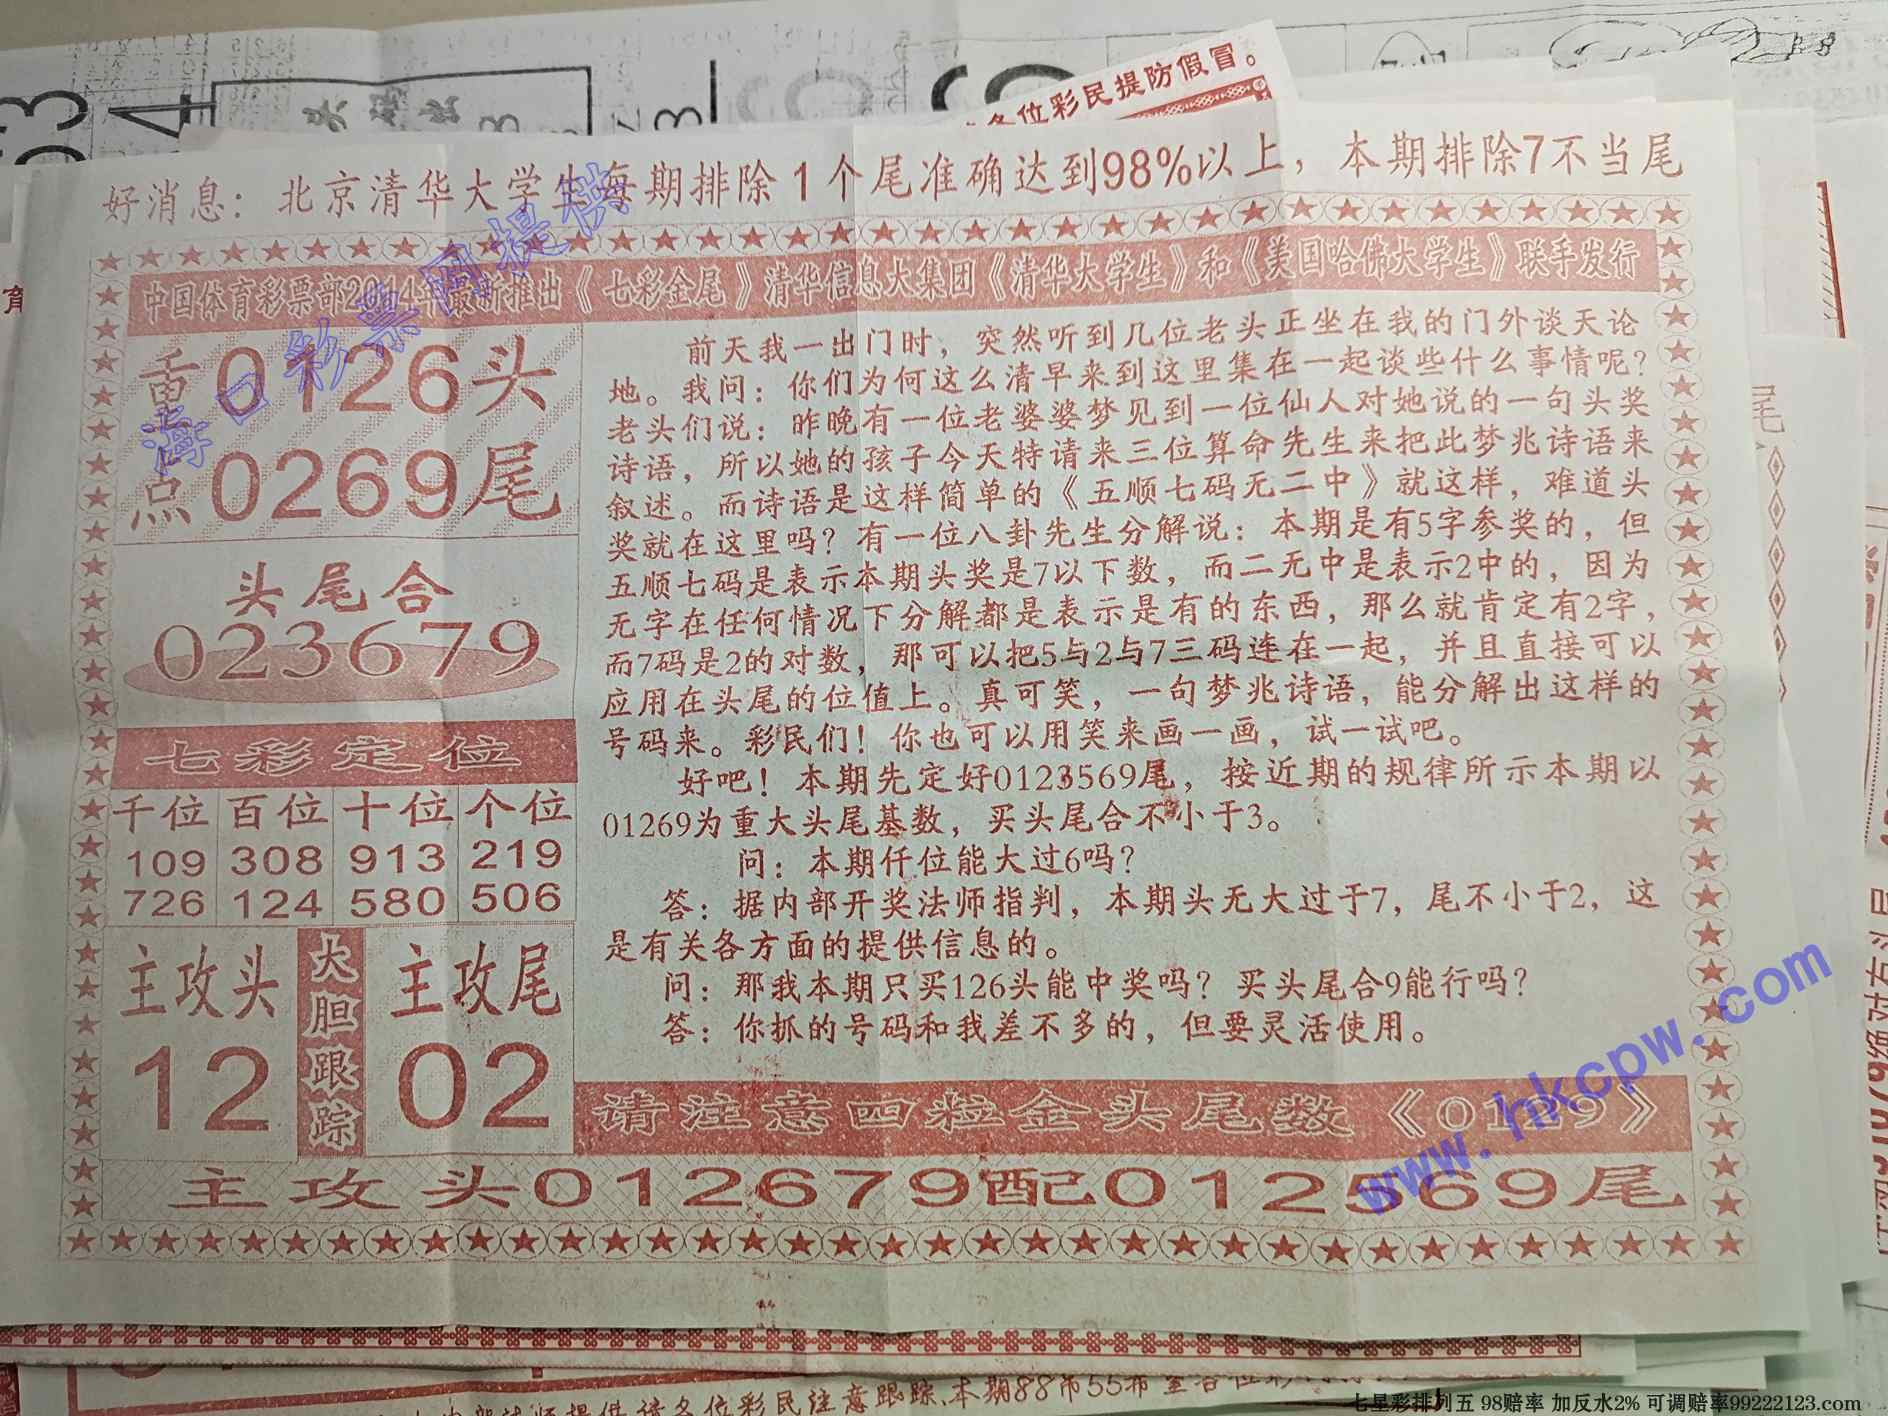 各位彩民提防假冒。
好消息：北京清华大学生每期排除1个尾准确达到98%以上，本期排除7不当尾
中国体育彩票部2014年最新推出《七彩金尾》清华信息大集团《清华大学生》和《美国哈佛大学生》联手发行
重点
0126头
0269尾
头尾合
023679
七彩定位
千位 百位 十位 个位
109 308 913 219
726 124 580 506
主攻头
12
大胆跟踪
主攻尾
02
前天我一出门时，突然听到几位老头正坐在我的门外谈天论
地。我问：你们为何这么清早来到这里集在一起谈些什么事情呢？
老头们说：昨晚有一位老婆婆梦见到一位仙人对她说的一句头奖
诗语，所以她的孩子今天特请来三位算命先生来把此梦兆诗语来
叙述。而诗语是这样简单的《五顺七码无二中》就这样，难道头
奖就在这里吗？有一位八卦先生分解说：本期是有5字参奖的，但
五顺七码是表示本期头奖是7以下数，而二无中是表示2中的，因为
无字在任何情况下分解都是表示是有的东西，那么就肯定有2字，
而7码是2的对数，那可以把5与2与7三码连在一起，并且直接可以
应用在头尾的位值上。真可笑，一句梦兆诗语，能分解出这样的
号码来。彩民们！你也可以用笑来画一画，试一试吧。
好吧！本期先定好0123569尾，按近期的规律所示本期以
01269为重大头尾基数，买头尾合不小于3。
问：本期仟位能大过6吗？
答：据内部开奖法师指判，本期头无大过于7，尾不小于2，这
是有关各方面的提供信息的。
问：那我本期只买126头能中奖吗？买头尾合9能行吗？
答：你抓的号码和我差不多的，但要灵活使用。
请注意四粒金头尾数《0129》
主攻头012679配012569尾
海口彩票网提供
www.hkcpw.com
七星彩排列五 98赔率 加反水2% 可调赔率99222123.com